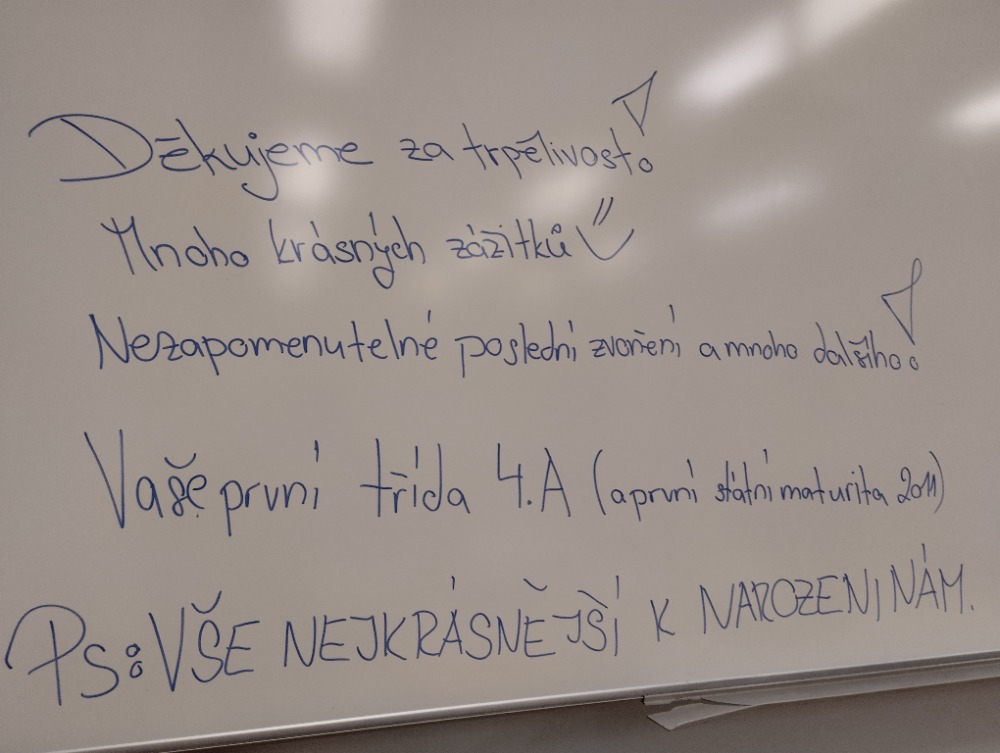 Děkujeme za trpělivost!
Mnoho krásných zážitků
Nezapomenutelné poslední zvonění a mnoho dalšího!
Vaše první třída 4.A (a první státní maturita 2011)
PS: VŠE NEJKRÁSNĚJŠÍ K NAROZENINÁM.